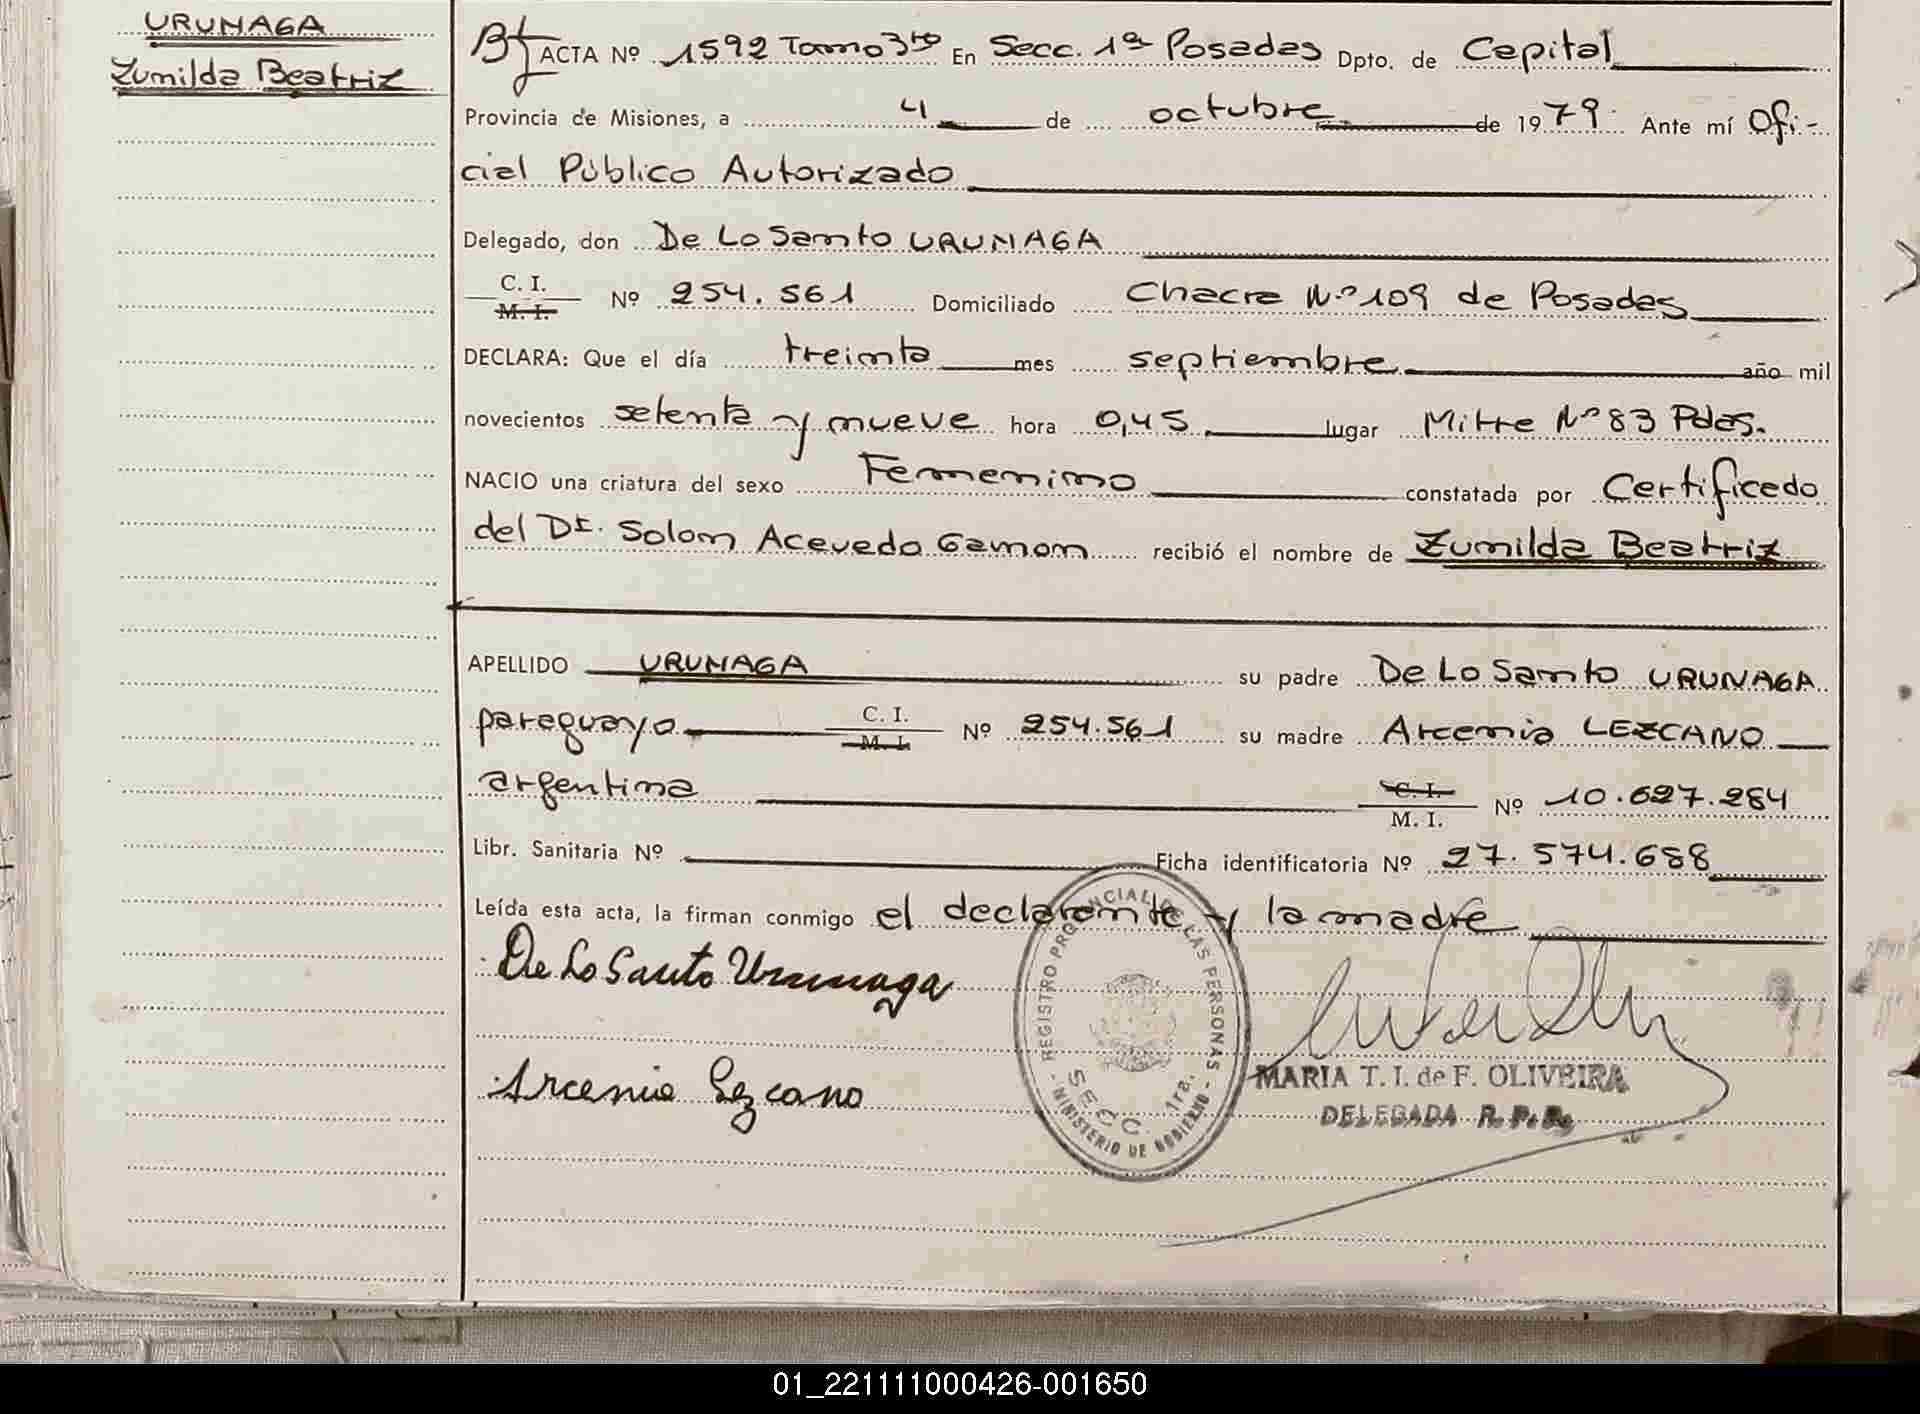 URUNAGA
Zunilda Beatriz
ACTA Nº 1592 Tomo 3ro En Secc. 1ª Posadas Dpto. de Capital
Provincia de Misiones, a 4 de octubre de 1979 Ante mí Ofi-
cial Público Autorizado
Delegado, don De Lo Santo URUNAGA
C. I.
M. I. Nº 254.561 Domiciliado Chacra Nº 109 de Posadas
DECLARA: Que el día treinta mes septiembre año mil
novecientos setenta y nueve hora 0,45 lugar Mitre Nº 83 Pdas.
NACIO una criatura del sexo Femenino constatada por Certificado
del Dr. Solon Acevedo Gamon recibió el nombre de Zunilda Beatriz
APELLIDO URUNAGA su padre De Lo Santo URUNAGA
paraguayo C. I.
M. I. Nº 254.561 su madre Arcenia LEZCANO
argentina C. I.
M. I. Nº 10.627.284
Libr. Sanitaria Nº Ficha identificatoria Nº 27.574.688
Leída esta acta, la firman conmigo el declarante y la madre
De Lo Santo Urunaga
Arcenia Lezcano
REGISTRO PROVINCIAL DE LAS PERSONAS
SECC. 1ra.
MINISTERIO DE GOBIERNO
MARIA T. I. de F. OLIVEIRA
DELEGADA R. P. P.
01_221111000426-001650